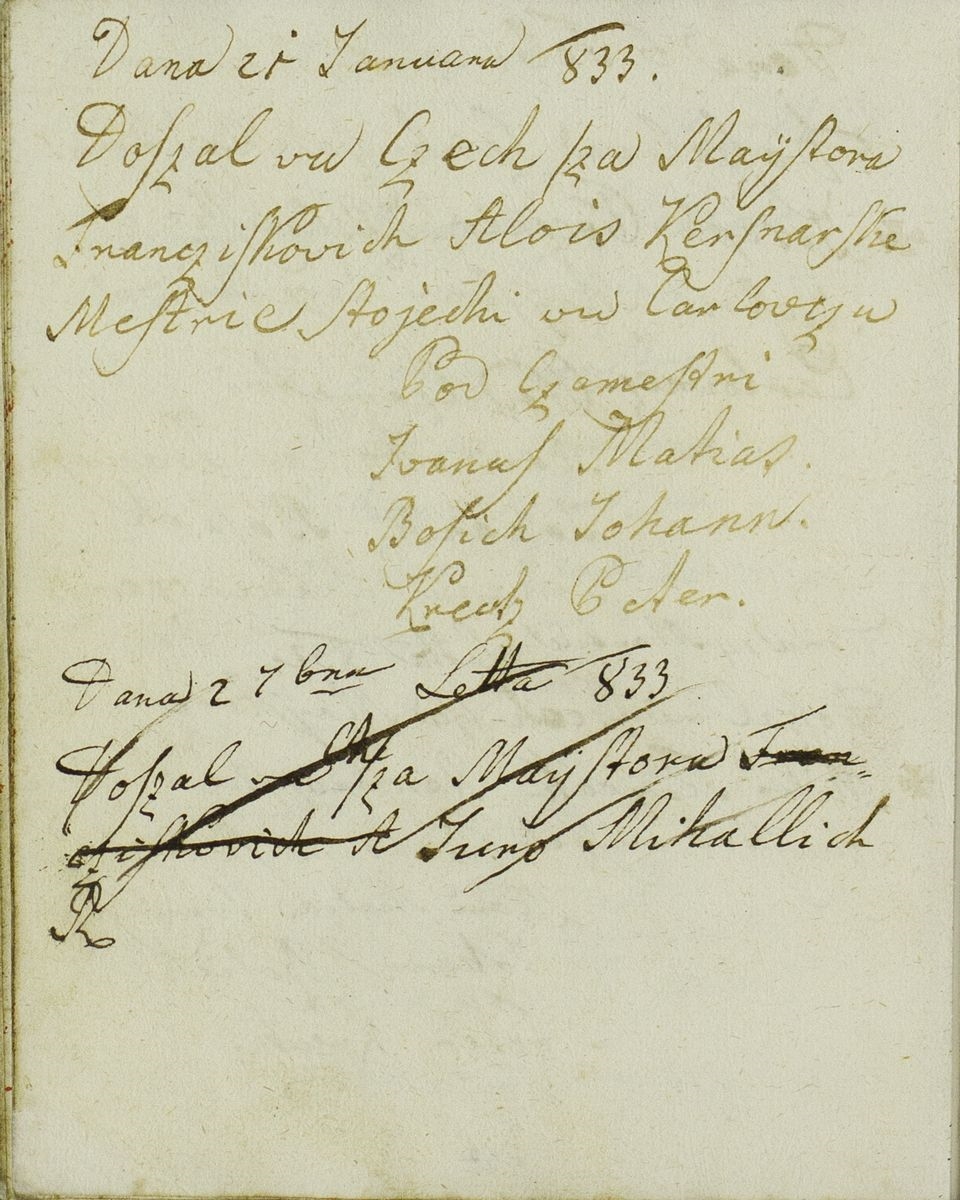 Dana 21 Januara 833.
Doszal vu Czech sza Maystora
Francziskovich Alois Kersnarske
Mestrie stojechi vu Carlovczu
Pod Czamestri
Ivanus Matias.
Bosich Johann.
Peter.
Dana 2 7bra Letta 833
Doszal vu Ch sza Maystora Fran-
cziskovich A Juro Mihallich